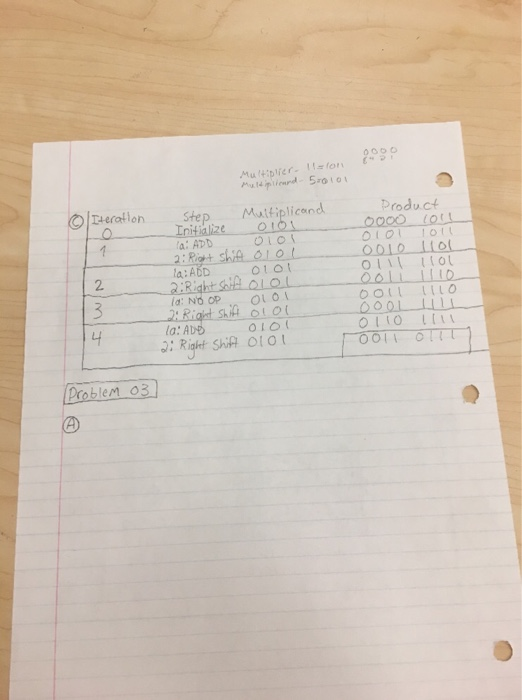 0000
8421
Multiplier- 11=1011
Multiplicand- 5=0101
Ⓒ Iteration Step Multiplicand Product
0 Initialize 0101 0000 1011
1 1a: ADD 0101 0101 1011
2: Right Shift 0101 0010 1101
2 1a: ADD 0101 0111 1101
2: Right Shift 0101 0011 1110
3 1a: NO OP 0101 0011 1110
2: Right Shift 0101 0001 1111
4 1a: ADD 0101 0110 1111
2: Right Shift 0101 0011 0111
Problem 03
Ⓐ